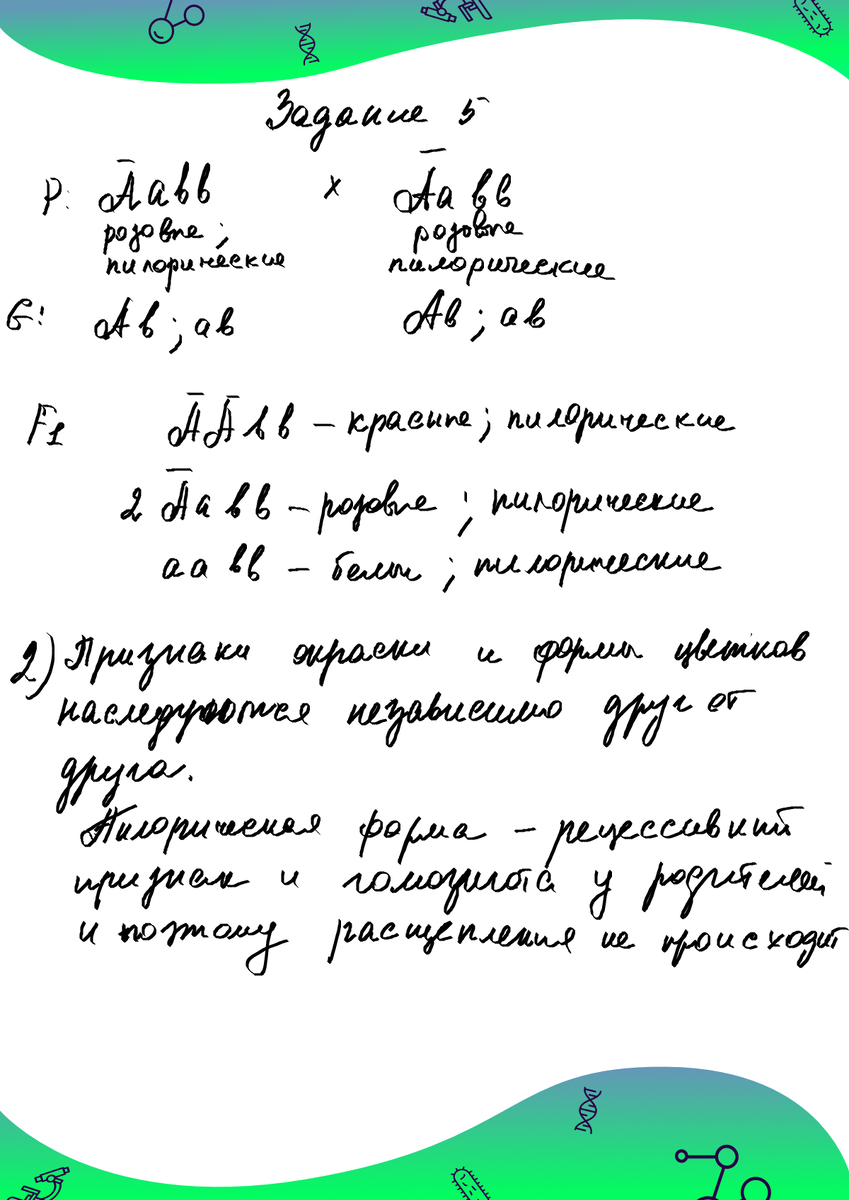 Задание 5
P: Āавв x Āавв
розовые; розовые
пилорические пилорические
G: Ав; ав Ав; ав
F1 ĀĀвв – красные; пилорические
2 Āавв – розовые; пилорические
аавв – белые; пилорические
2) Признаки окраски и формы цветков
наследуются независимо друг от
друга.
Пилорическая форма – рецессивный
признак и гомозигота у родителей
и поэтому расщепления не происходит